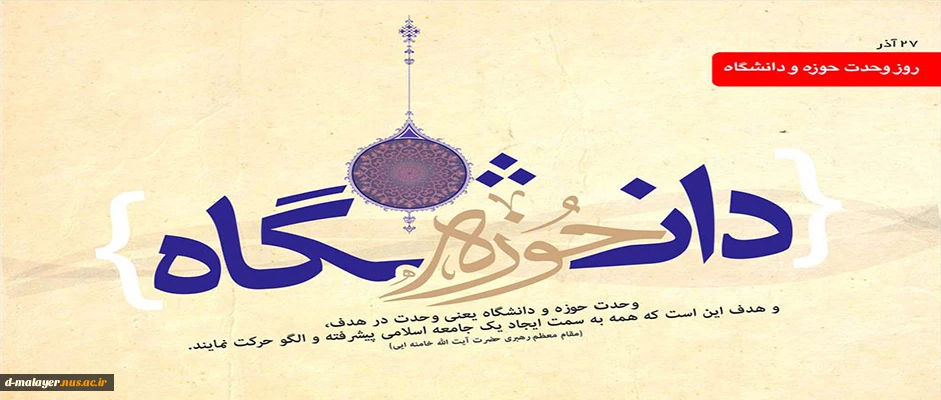 ۲۷ آذر
روز وحدت حوزه و دانشگاه
دانشگاه
حوزه
وحدت حوزه و دانشگاه یعنی وحدت در هدف،
و هدف این است که همه به سمت ایجاد یک جامعه اسلامی پیشرفته و الگو حرکت نمایند.
(مقام معظم رهبری حضرت آیت الله خامنه ایی)
d-malayer.nus.ac.ir